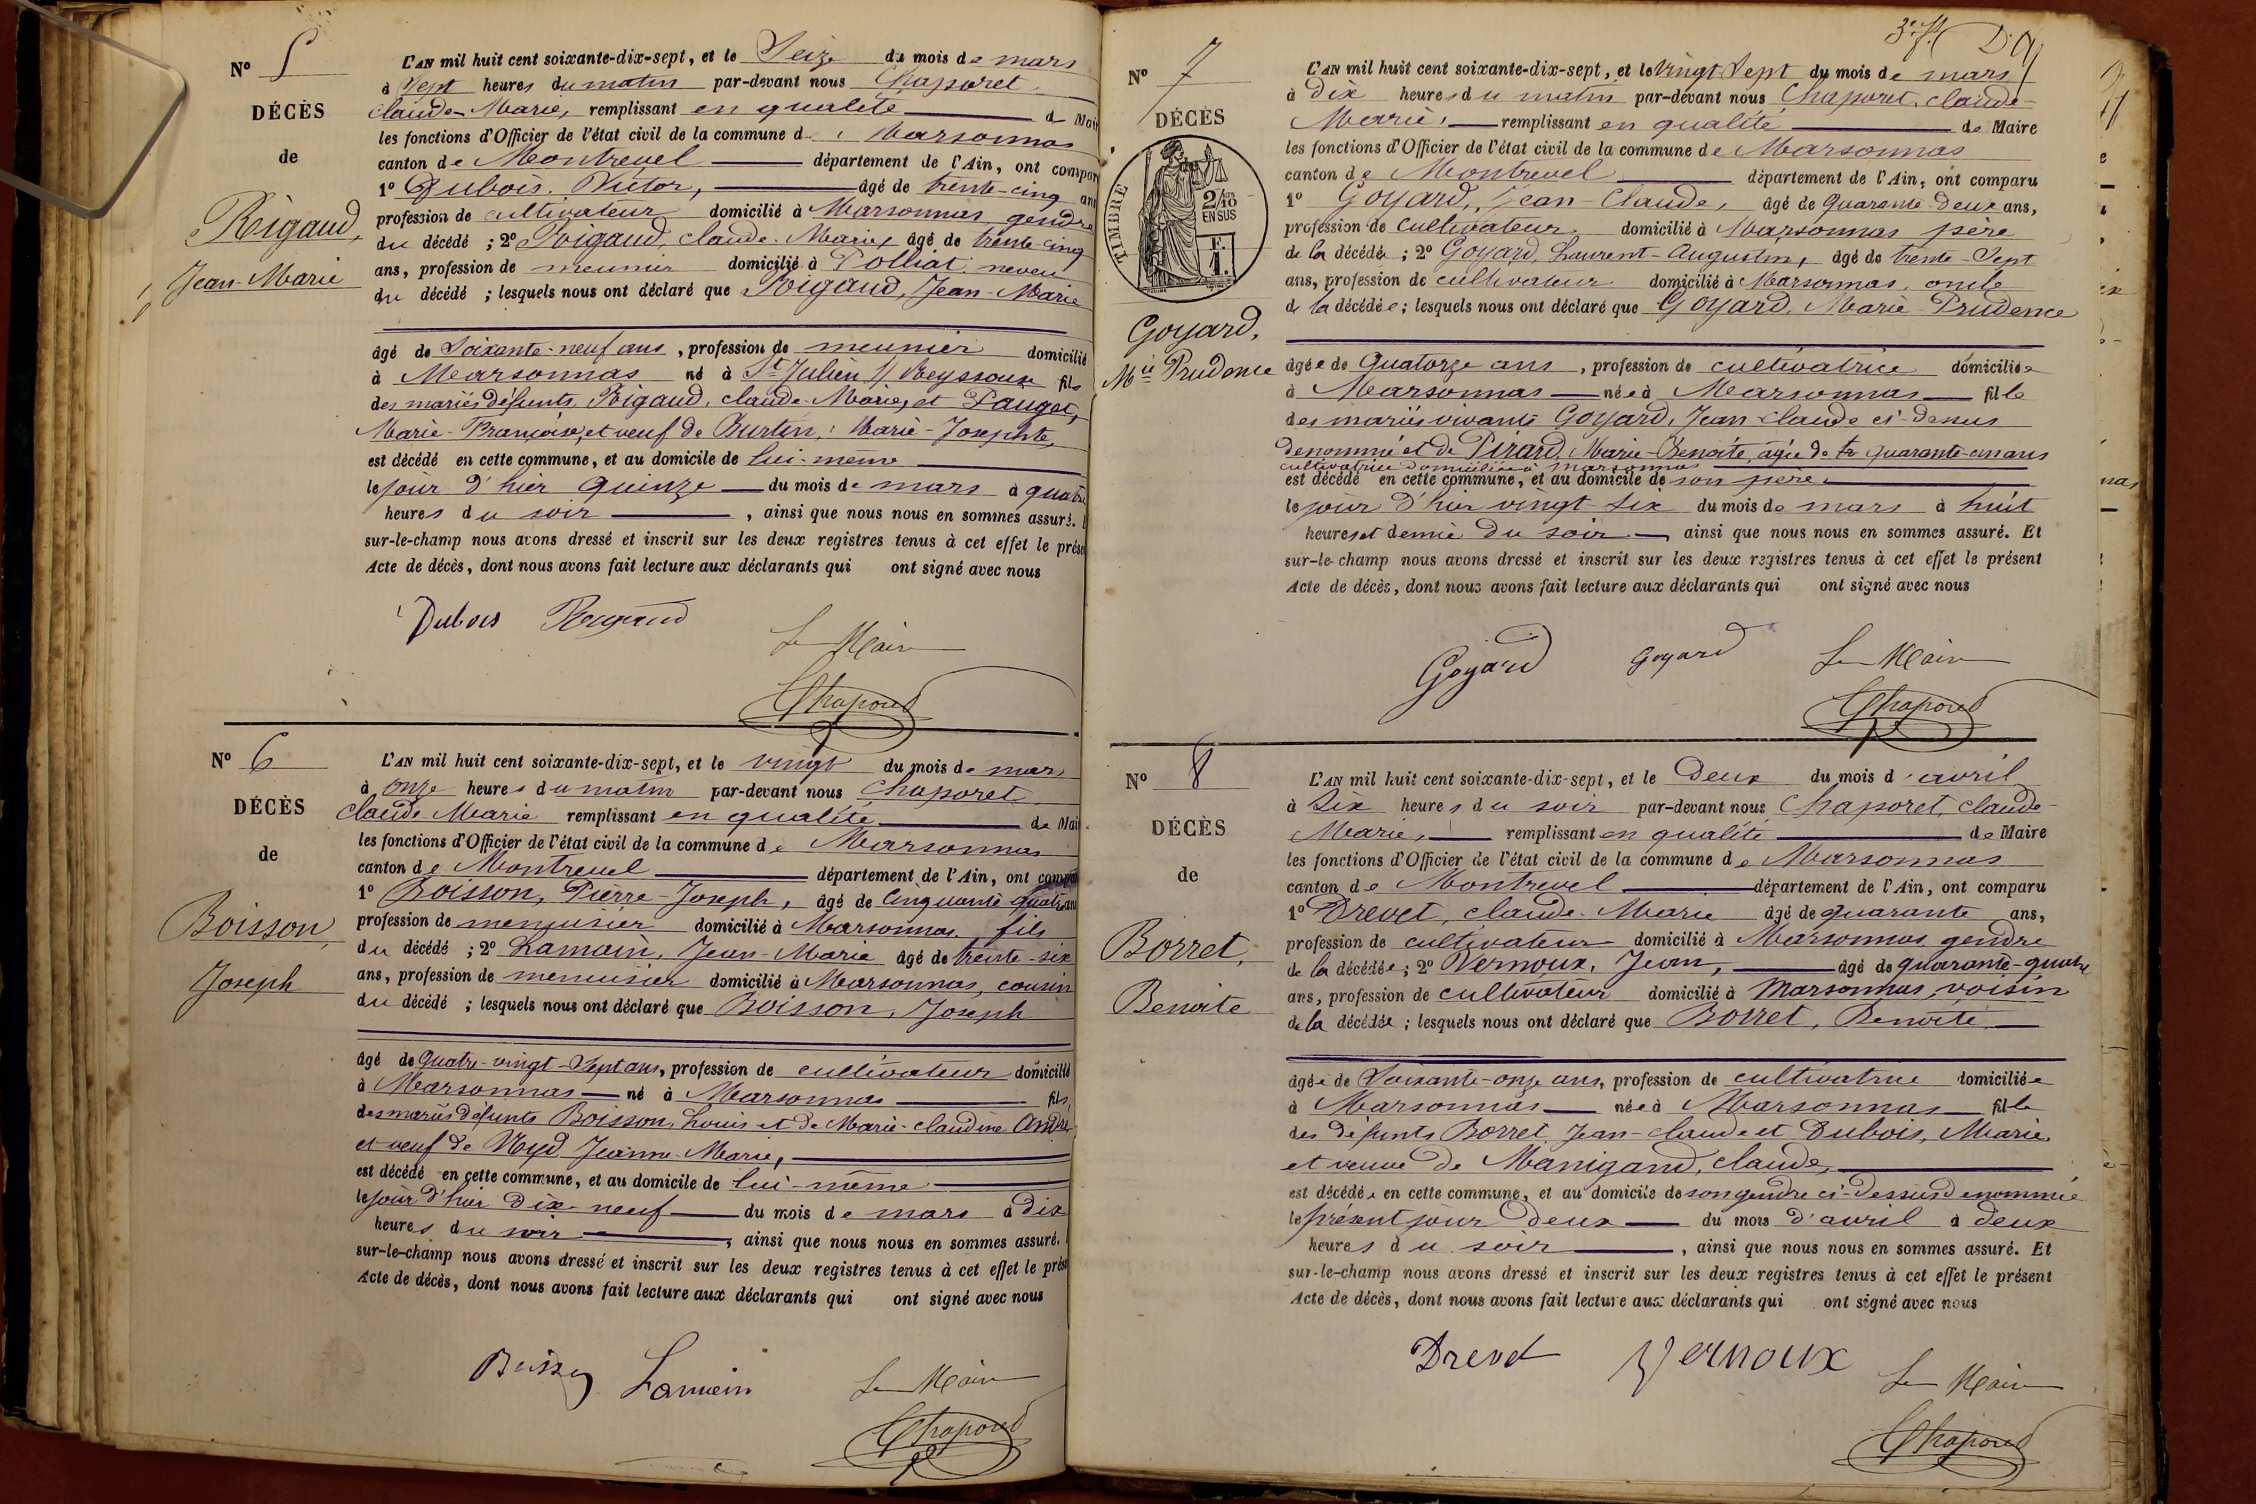 Nº 5
DÉCÈS
de
Rigaud,
Jean-Marie
L'AN mil huit cent soixante-dix-sept, et le Seize du mois de mars
à Sept heures du matin par-devant nous Chaporet
claude-Marie, remplissant en qualité de Mair
les fonctions d'Officier de l'état civil de la commune de Marsonnas
canton de Montrevel département de l'Ain, ont compar
1º Dubois, Victor, âgé de trente-cinq ans
profession de cultivateur domicilié à Marsonnas gendre
du décédé ; 2º Rigaud, claude-Marie, âgé de trente-cinq
ans, profession de meunier domicilié à Polliat, neveu
du décédé ; lesquels nous ont déclaré que Rigaud, Jean-Marie
âgé de Soixante-neuf ans, profession de meunier domicilié
à Marsonnas né à St Julien s/ Reyssouze fils
des mariés défunts, Rigaud, claude-Marie, et Pauget,
Marie-Françoise, et veuf de Burtin, Marie-Josephte,
est décédé en cette commune, et au domicile de lui-même
le jour d'hier quinze du mois de mars à quatre
heures du soir, ainsi que nous nous en sommes assuré.
sur-le-champ nous avons dressé et inscrit sur les deux registres tenus à cet effet le prése
Acte de décès, dont nous avons fait lecture aux déclarants qui ont signé avec nous
Dubois Rigaud
Le Maire
Chaporet
Nº 6
DÉCÈS
de
Boisson,
Joseph
L'AN mil huit cent soixante-dix-sept, et le vingt du mois de mars
à onze heures du matin par-devant nous Chaporet
claude-Marie remplissant en qualité de Mai
les fonctions d'Officier de l'état civil de la commune de Marsonnas
canton de Montrevel département de l'Ain, ont compa
1º Boisson, Pierre-Joseph, âgé de Cinquante quatre ans
profession de menuisier domicilié à Marsonnas, fils
du décédé ; 2º Lamain, Jean-Marie âgé de trente-six
ans, profession de menuisier domicilié à Marsonnas, cousin
du décédé ; lesquels nous ont déclaré que Boisson, Joseph
âgé de Quatre-vingt-Sept ans, profession de cultivateur domicilié
à Marsonnas né à Marsonnas fils
des mariés défunts Boisson, Louis et de Marie-claudine
et veuf de Jeanne-Marie,
est décédé en cette commune, et au domicile de lui-même
le jour d'hier Dix-neuf du mois de mars à dix
heures du soir, ainsi que nous nous en sommes assuré.
sur-le-champ nous avons dressé et inscrit sur les deux registres tenus à cet effet le prése
Acte de décès, dont nous avons fait lecture aux déclarants qui ont signé avec nous
Boisson Lamain
Le Maire
Chaporet
Nº 7
DÉCÈS
TIMBRE
2 2/10
EN SUS
Goyard,
Mie Prudence
L'AN mil huit cent soixante-dix-sept, et le Vingt Sept du mois de mars
à Dix heures du matin par-devant nous Chaporet, claude-
Marie, remplissant en qualité de Maire
les fonctions d'Officier de l'état civil de la commune de Marsonnas
canton de Montrevel département de l'Ain, ont comparu
1º Goyard, Jean-Claude, âgé de Quarante-deux ans,
profession de cultivateur domicilié à Marsonnas père
de la décédée ; 2º Goyard, Laurent-Augustin, âgé de trente-Sept
ans, profession de cultivateur domicilié à Marsonnas, oncle
de la décédée ; lesquels nous ont déclaré que Goyard, Marie-Prudence
âgée de Quatorze ans, profession de cultivatrice domiciliée
à Marsonnas née à Marsonnas fille
des mariés vivants Goyard, Jean-claude ci-dessus
denommé et de Pirard, Marie-Benoite, âgée de quarante-un ans
cultivatrice domiciliée à Marsonnas
est décédé en cette commune, et au domicile de son père
le jour d'hier vingt-Six du mois de mars à huit
heures et demie du soir, ainsi que nous nous en sommes assuré. Et
sur-le-champ nous avons dressé et inscrit sur les deux registres tenus à cet effet le présent
Acte de décès, dont nous avons fait lecture aux déclarants qui ont signé avec nous
Goyard Goyard
Le Maire
Chaporet
Nº 8
DÉCÈS
de
Borret,
Benoite
L'AN mil huit cent soixante-dix-sept, et le Deux du mois d'avril
à Six heures du soir par-devant nous Chaporet, claude-
Marie, remplissant en qualité de Maire
les fonctions d'Officier de l'état civil de la commune de Marsonnas
canton de Montrevel département de l'Ain, ont comparu
1º Drevet, claude-Marie âgé de quarante ans,
profession de cultivateur domicilié à Marsonnas gendre
de la décédée ; 2º Vernoux, Jean, âgé de quarante-quatre
ans, profession de cultivateur domicilié à Marsonnas, voisin
de la décédée ; lesquels nous ont déclaré que Borret, Benoite
âgée de Soixante-onze ans, profession de cultivatrice domiciliée
à Marsonnas née à Marsonnas fille
des défunts Borret, Jean-claude et Dubois, Marie
et veuve de Manigand, claude,
est décédée en cette commune, et au domicile de son gendre ci-dessus denommé
le présent jour Deux du mois d'avril à deux
heures du soir, ainsi que nous nous en sommes assuré. Et
sur-le-champ nous avons dressé et inscrit sur les deux registres tenus à cet effet le présent
Acte de décès, dont nous avons fait lecture aux déclarants qui ont signé avec nous
Drevet Vernoux
Le Maire
Chaporet